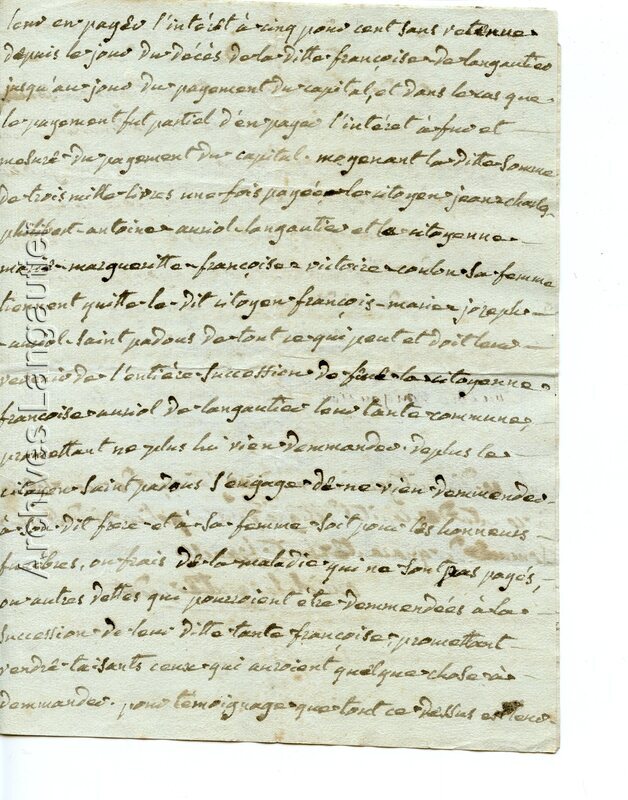 leur en payer l'intérêt à cinq pour cent sans retenue
depuis le jour du décès de la ditte françoise de langautier
jusqu'au jour du payement du capital, et dans le cas que
le payement fut partiel d'en payer l'intérêt à fur et
mesure du payement du capital. moyenant la ditte somme
de trois mille livres une fois payée, le citoyen jean charles
philibert antoine auriol langautier et la citoyenne
marie margueritte françoise victoire coulon sa femme
tiennent quitte le dit citoyen françois marie joseph
auriol saint padous de tout ce qui peut et doit leur
revenir de l'entière succession de feue la citoyenne
françoise auriol de langautier leur tante commune,
promettant ne plus lui rien demmander. de plus le
citoyen saint padous s'engage de ne rien demmender
à son dit frère et à sa femme soit pour les honneurs
funèbres, ou frais de la maladie qui ne sont pas payés,
ou autres dettes qui pourroient être demmendées à la
succession de leur ditte tante françoise, promettant
rendre taisants ceux qui auroient quelque chose à
demmander. pour témoignage que tout ce dessus est leur
Archives Langautier